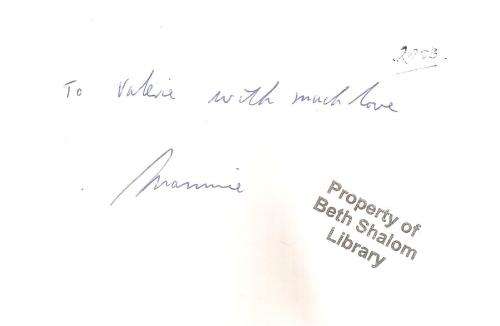 2003.
To Valerie with much love
Mannie
Property of
Beth Shalom
Library